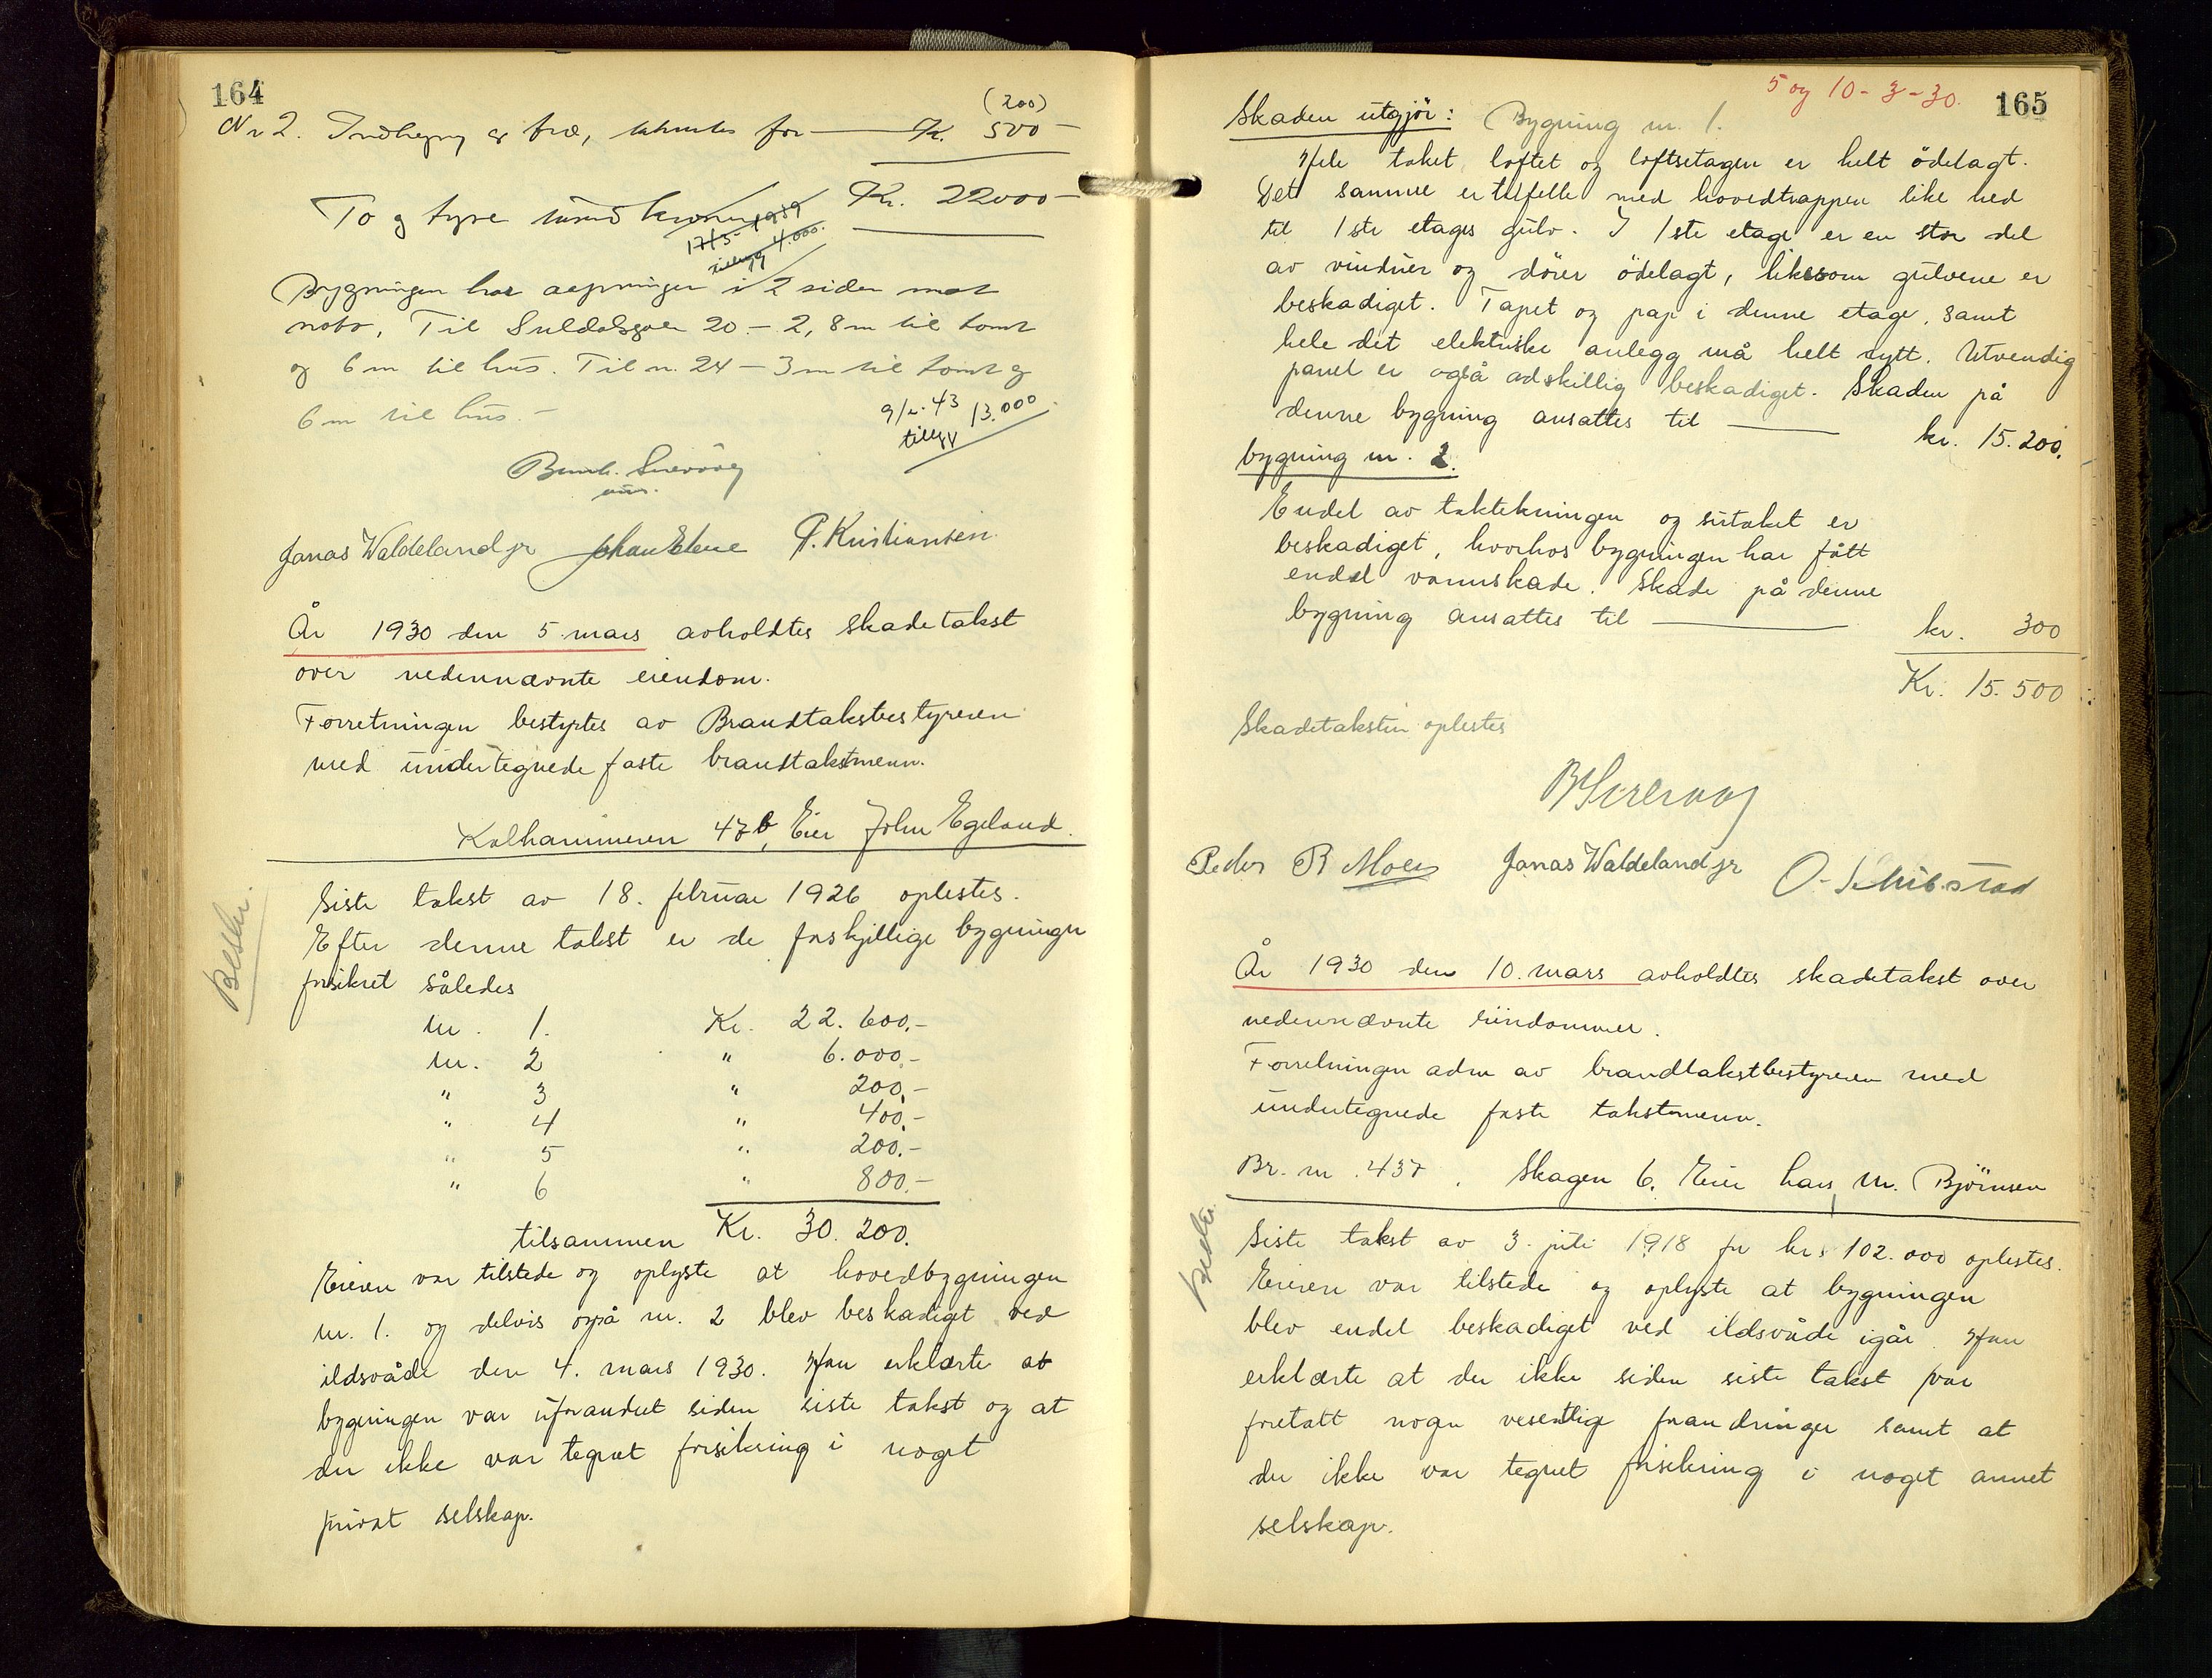 164
(200)
Nr 2. Indhegn og træ, takseres for Kr. 500 –
To og tyve tusind kroner Kr. 22000 –
17/5 – 1939
tillegg 4.000.
Bygningen har aapninger i 2 sider mot
nabo, Til Suldalsgaten 20 – 2,8 m til tomt
og 6 m til hus. Til nr. 24 – 3 m til tomt og
6 m til hus. –
9/ 43
tillegg 13.000
Jonas Waldeland jr P. Kristiansen
År 1930 den 5 mars avholdtes skadetakst
over nedennævnte eiendom.
Forretningen bestyrtes av Brandtakstbestyreren
med undertegnede faste brandtakstmenn.
Kalhammeren 47b, Eier John Egeland.
Beskr.
Siste takst av 18. februar 1926 oplestes.
Efter denne takst er de forskjellige bygninger
forsikret således
nr. 1. Kr. 22.600,-
nr. 2 " 6.000,-
" 3 " 200,-
" 4 " 400,-
" 5 " 200,-
" 6 " 800,-
tilsammen Kr. 30.200.
Eieren var tilstede og oplyste at hovedbygningen
nr. 1. og delvis også nr. 2 blev beskadiget ved
ildsvåde den 4. mars 1930. Han erklærte at
bygningen var uforandret siden siste takst og at
der ikke var tegnet forsikring i noget
privat selskap.
5 og 10-3-30.
165
Skaden utgjör: Bygning nr. 1.
Hele taket, loftet og loftsetagen er helt ödelagt.
Det samme er tilfelle med hovedtrappen like ned
til 1ste etages gulv. I 1ste etage er en stor del
av vinduer og dörer ödelagt, likesom gulvene er
beskadiget. Tapet og pap i denne etage, samt
hele det elektriske anlegg må helt nytt. Utvendig
panel er også adskillig beskadiget. Skaden på
denne bygning ansattes til kr. 15.200.
bygning nr. 2.
Endel av taktekningen og sutaket er
beskadiget, hvorhos bygningen har fått
endel vannskade. Skade på denne
bygning ansattes til kr. 300
Kr. 15.500
Skadetaksten oplestes
Peder R Moen Jonas Waldeland jr O. Schibstad
År 1930 den 10. mars avholdtes skadetakst over
nedennævnte eiendommer.
Forretningen adm av brandtakstbestyreren med
undertegnede faste takstmenn.
Br. nr. 437. Skagen 6. Eier hans M. Björnsen
Beskr.
Siste takst av 3. juli 1918 for kr. 102.000 oplestes.
Eieren var tilstede og oplyste at bygningen
blev endel beskadiget ved ildsvåde igår. Han
erklærte at der ikke siden siste takst var
foretatt nogen vesentlige forandringer samt at
der ikke var tegnet forsikring i noget annet
selskap.